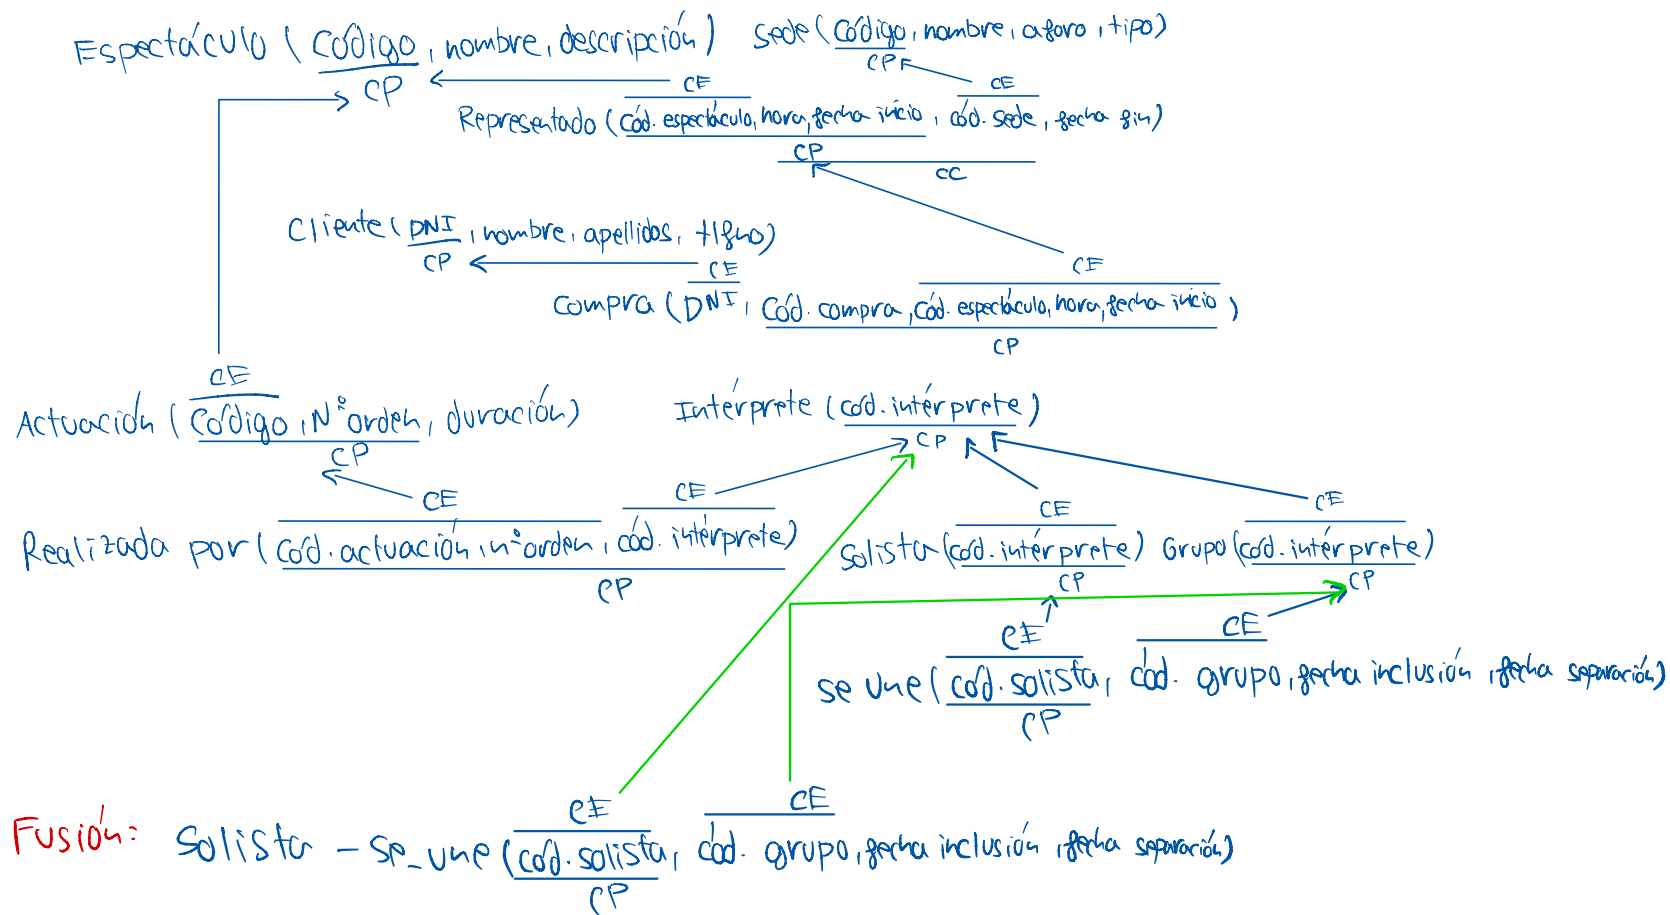 Espectáculo (Código, nombre, descripción) Sede (Código, nombre, aforo, tipo)
CP CP
CE CE
Representado (Cód. espectáculo, hora, fecha inicio, cód. Sede, fecha fin)
CP
CC
Cliente (DNI, nombre, apellidos, tlfno)
CP
CE CE
Compra (DNI, Cód. compra, cód. espectáculo, hora, fecha inicio)
CP
CE
Actuación (Código, Nº orden, duración) Intérprete (cód. intérprete)
CP CP
CE CE CE CE
Realizada por (cód. actuación, nº orden, cód. intérprete) Solista (cód. intérprete) Grupo (cód. intérprete)
CP CP CP
CE CE
Se une (cód. solista, cód. grupo, fecha inclusión, fecha separación)
CP
CE CE
Fusión: Solista - Se_une (cód. solista, cód. grupo, fecha inclusión, fecha separación)
CP